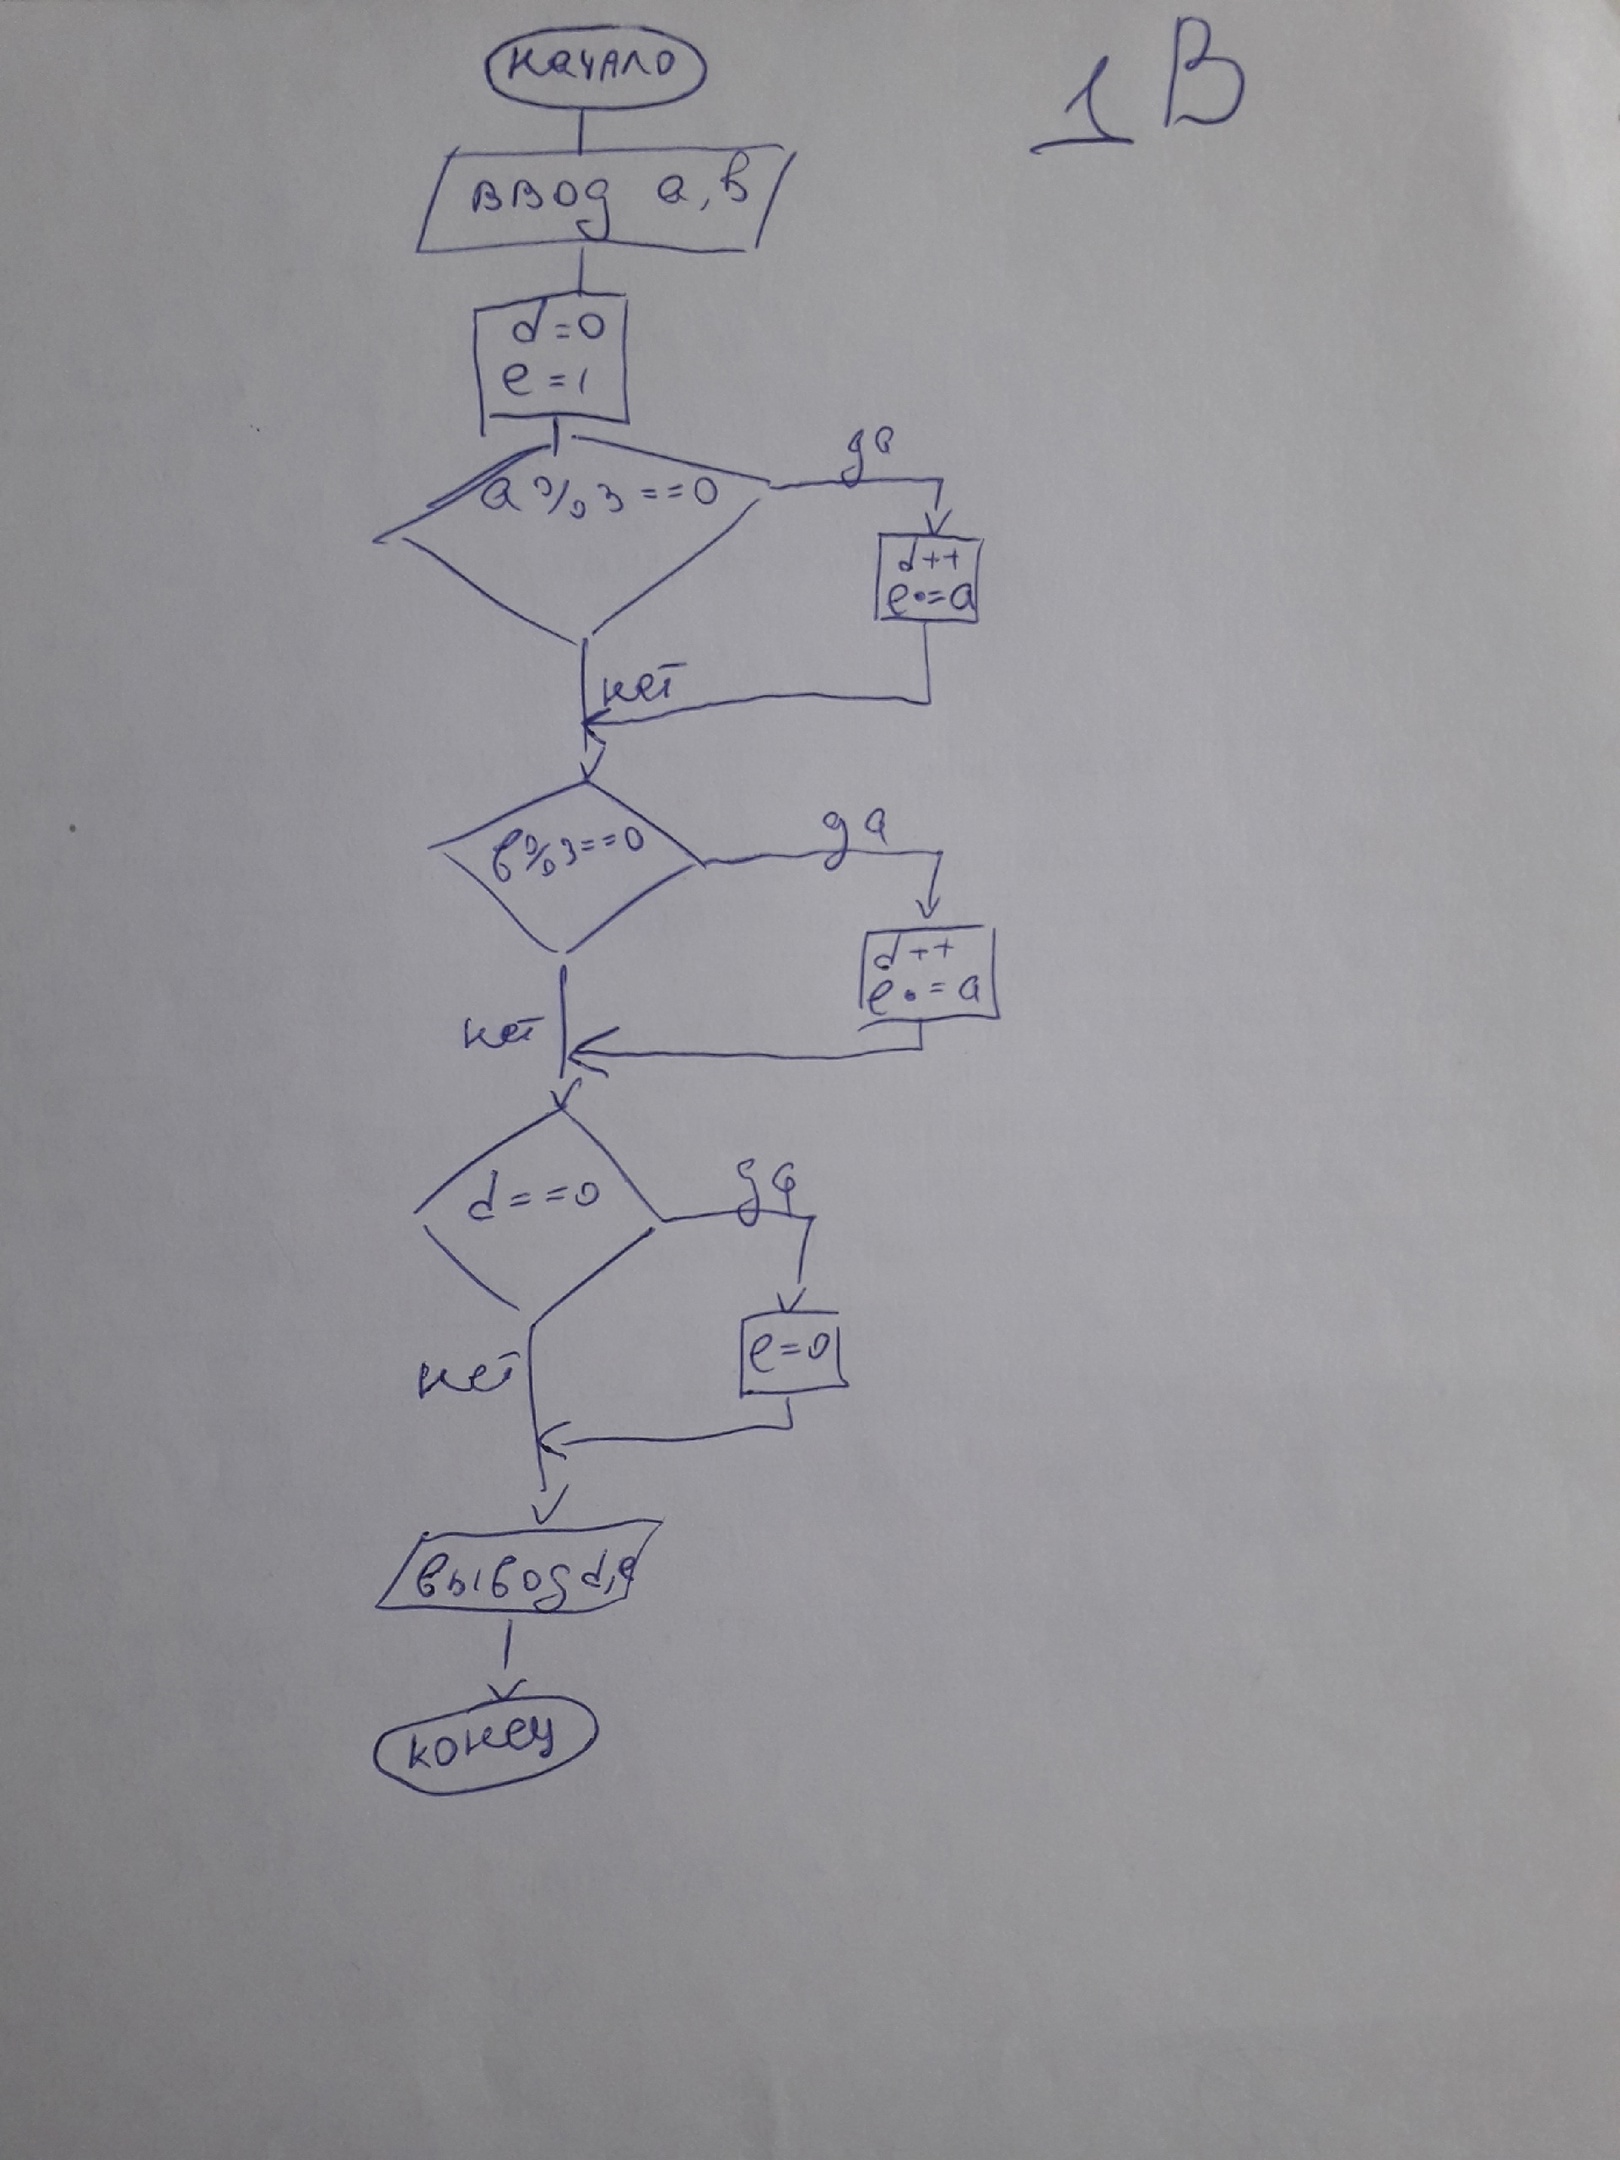 начало
1 В
ввод a, b
d=0
e=1
a%3==0
да
d++
e•=a
нет
b%3==0
да
d++
e•=a
нет
d==0
да
e=0
нет
вывод d,e
конец